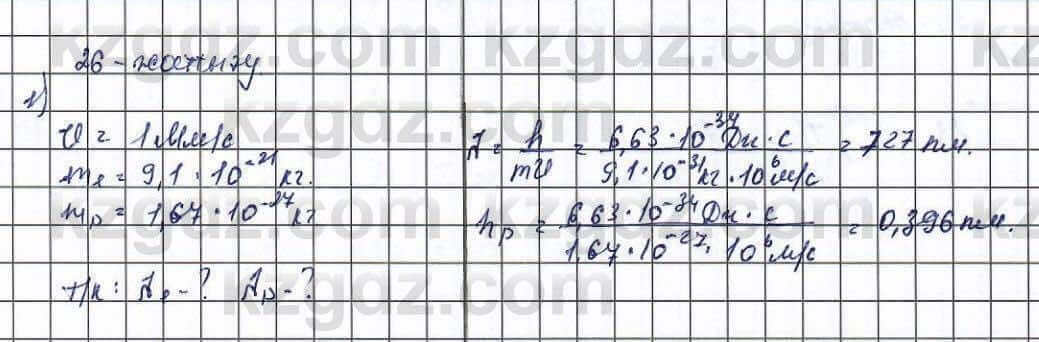 kzgdz.com kzgdz.com kz
26-жаттығу
1)
υ = 1 Мм/с
mₑ = 9,1 · 10⁻²¹ кг.
mₚ = 1,67 · 10⁻²⁷ кг
Т/к: λₑ - ? λₚ - ?
λ = h/mυ = 6,63 · 10⁻³⁴ Дж · с / 9,1 · 10⁻³¹ кг · 10⁶ м/с = 727 пм.
λₚ = 6,63 · 10⁻³⁴ Дж · с / 1,67 · 10⁻²⁷ · 10⁶ м/с = 0,396 пм.
kzgdz.com kzgdz.com kz
kzgdz.com kzgdz.com
kzgdz.com